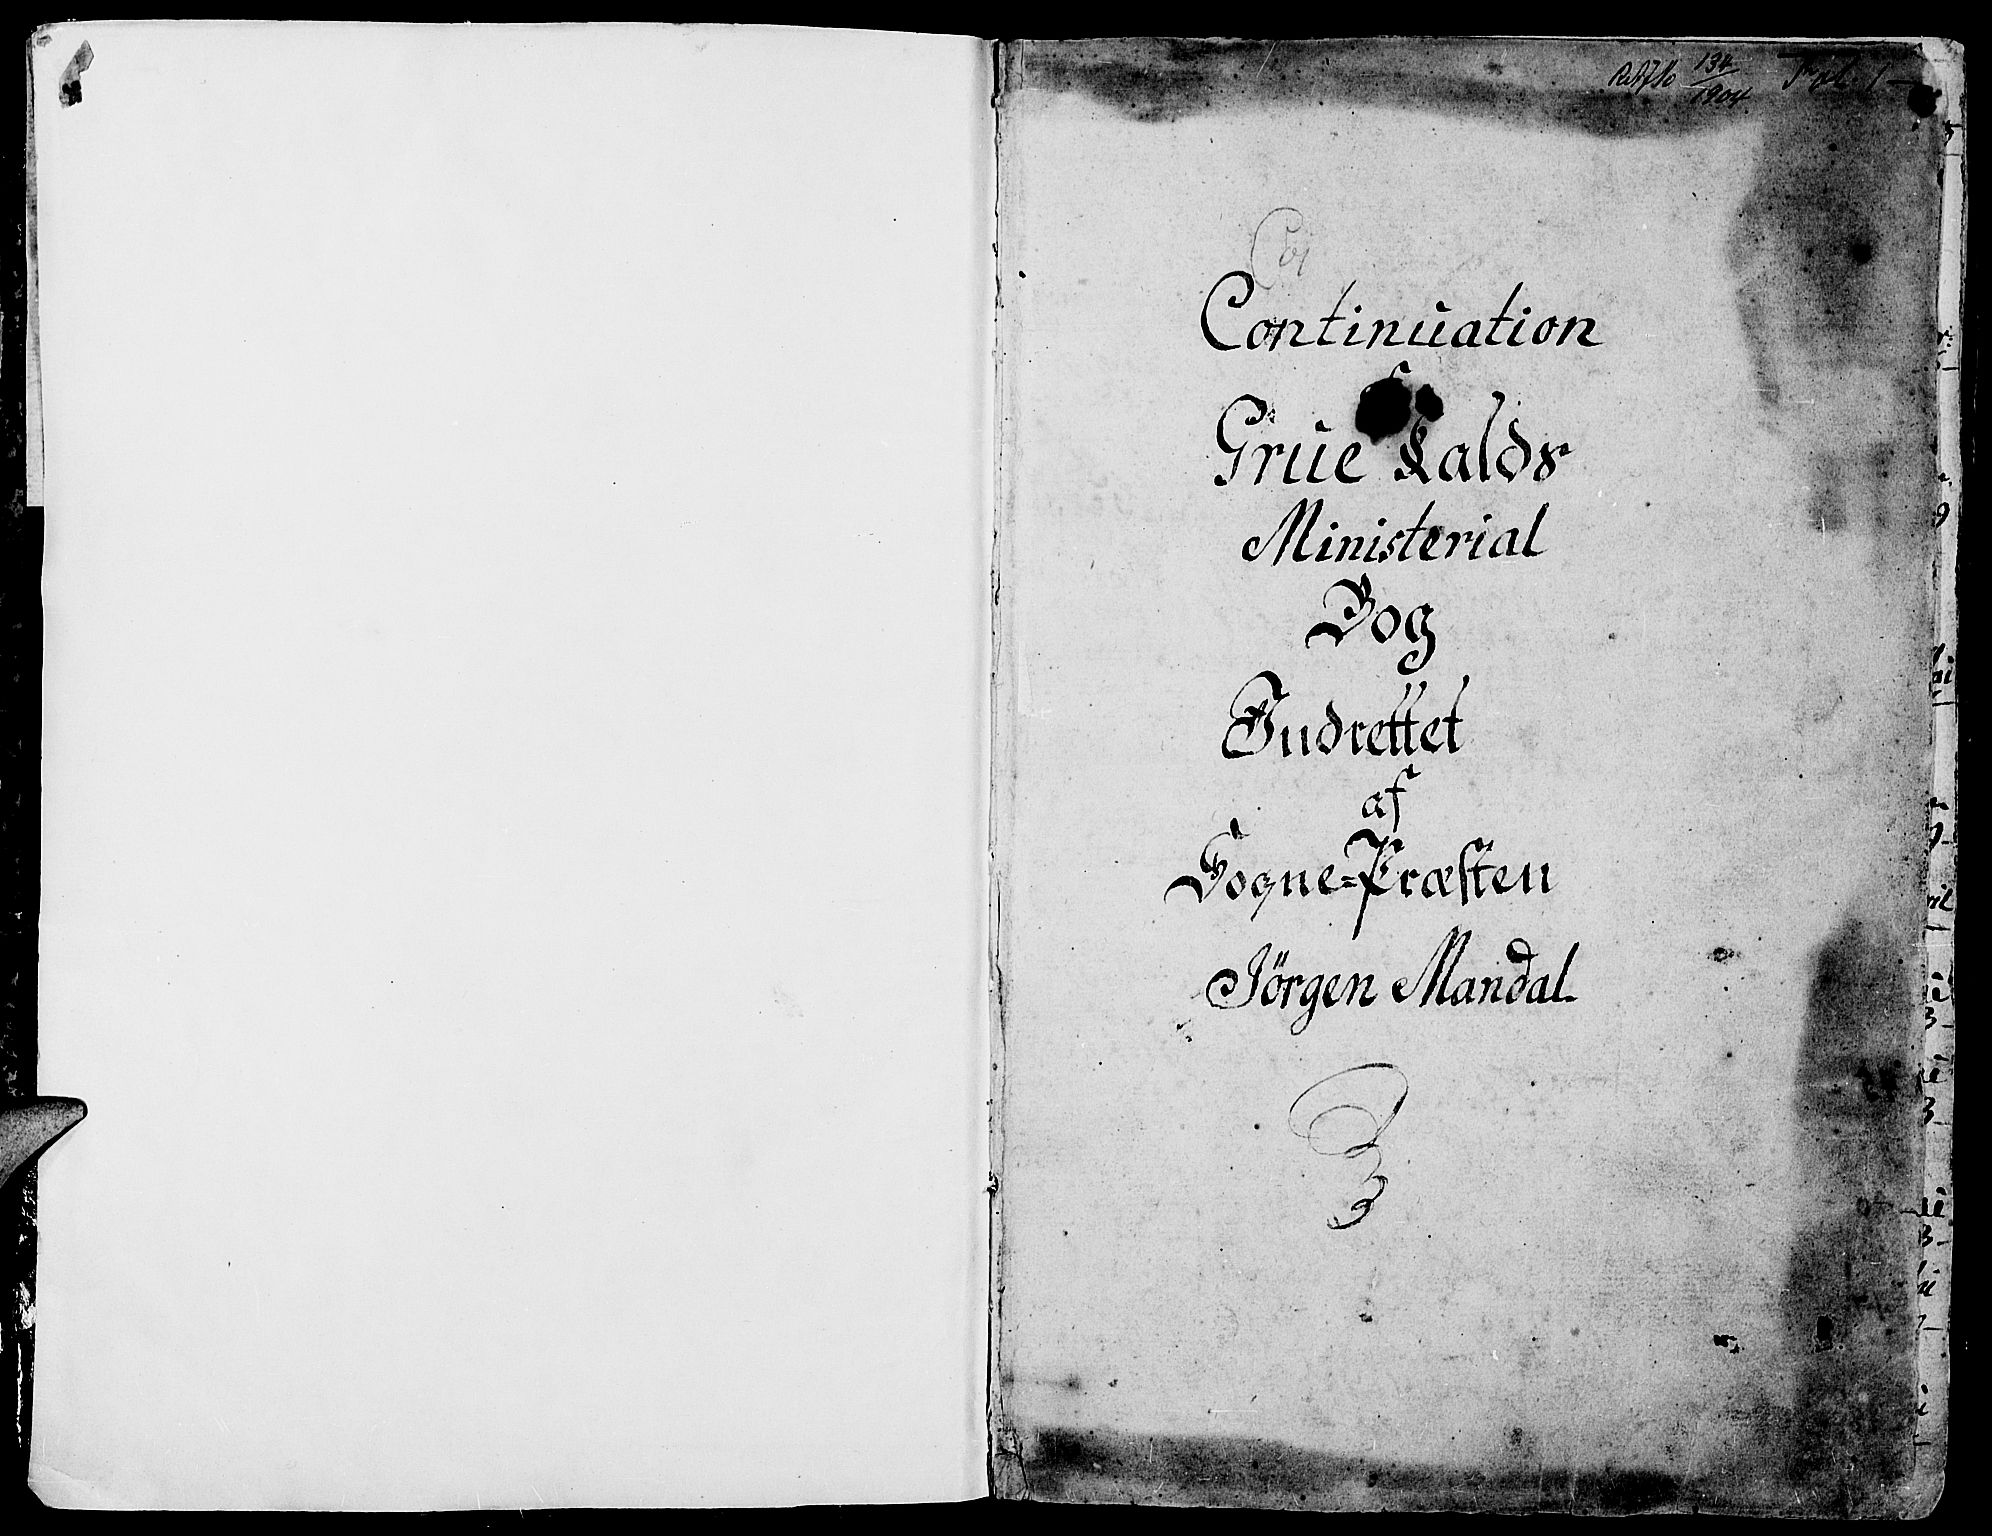 134
1904
Fol. 1
Continuation
af
Grue Kalds
Ministerial
Bog
Indrettet
af
Sogne=Præsten
Jörgen Mandal